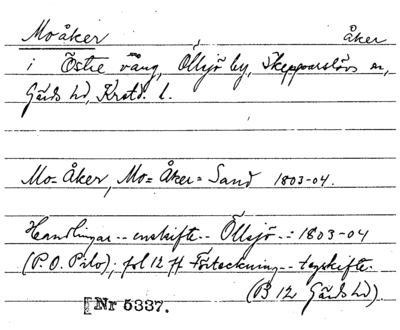 Moåker åker
i Östre vång, Öllsjö by, Skepparslövs sn,
Gärds hd, Krstd. l.
Mo= Åker, Mo= Åker= Sand 1803-04.
Handlingar -- enskifte -- Öllsjö -: 1803-04
(P.O. Pilo); fol 12 ff Förteckning -- tegskifte.
(B 12 Gärds hd)
Nr 5337.